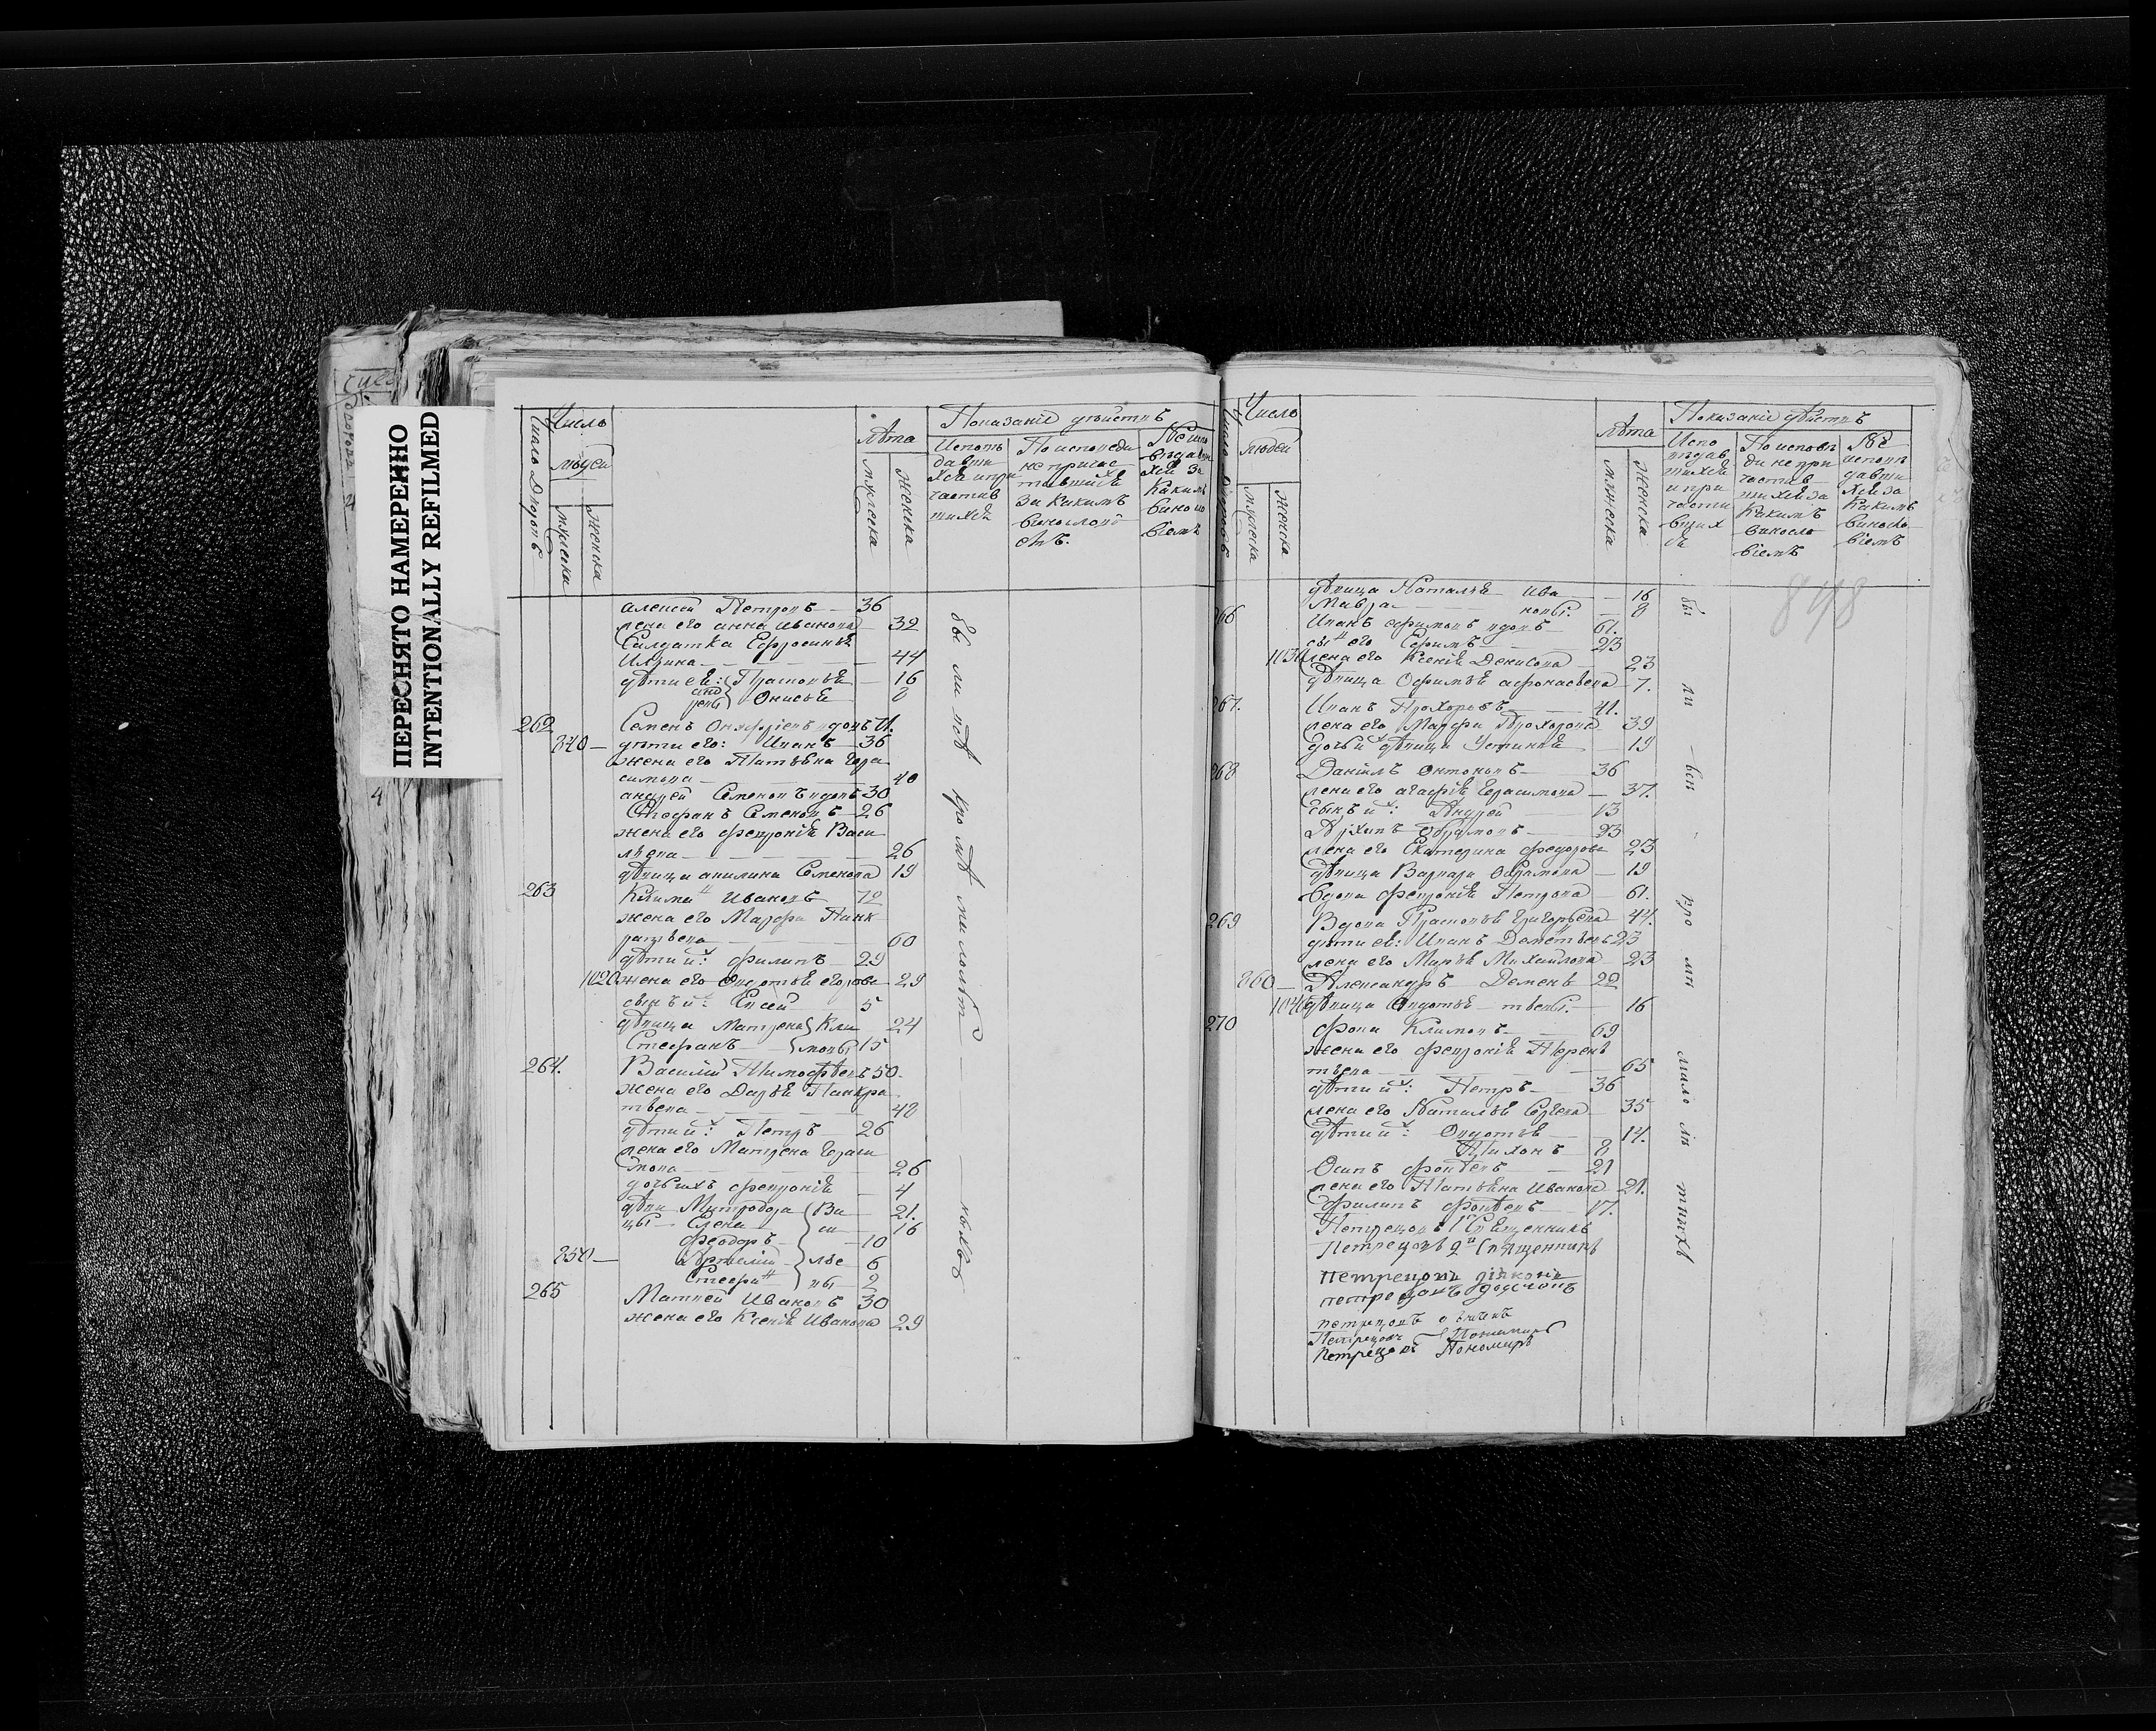 ПЕРЕСНЯТО НАМЕРЕННО
INTENTIONALLY REFILMED
Число
людей
Число Дворовъ
мужеска
женска
лѣта
мужеска
женска
Показаніе дѣйствъ
Исповѣ
давши
хся и при
частив
шихся
По исповеди
не причас
тившійся
за какимъ
винослові
емъ.
Не испо
вѣдавш
хся за
какимъ
винослo
віемъ
алексей Петровъ — 36
жена его анна иванова 32
Салдатка Ефросинья
44
дѣти ей: Прасковья — 16
Онисья 8
262 Семенъ Онуфріевъ вдовъ 71.
840 — дѣти его: Иванъ — 36
жена его Татьяна Гера
симова — 40
андрей Семеновъ вдовъ 30
Стефанъ Семеновъ — 26
жена его Февронія Васи
льева — 26
дѣвица акилина Семенова 19
263 Климъ Ивановъ 72
жена его Марфа Панк
ратьева — 60
дѣти ихъ: Филипъ — 29
1020 жена его Авдотья егорова 29
сынъ ихъ: Евсей 5
дѣвица Матрена Кли 24
Стефанъ — мовы 15
264. Василій Тимофѣевъ 50.
жена его Дарья Панкра
тьева — 48
дѣти ихъ: Петръ — 26
жена его Матрена Гераси
мова — 26
дочь ихъ Февронія — 4
дѣви Митродора Ва 21.
цы — Елена си 16
Феодоръ 10
850 — лье 6
Стефанъ вы 2
265 Матвей Ивановъ 30
жена его Ксенія Иванова 29
бы ли всѣ кромѣ малолѣт ныхъ
Число
людей
мужеска
женска
лѣта
мужеска
женска
Показаніе дѣйствъ
Испо
вѣдав
шихся
и при
части
вших
ся
По исповѣ
ди не при
частив
шихся за
какимъ
виносло
віемъ
Не
исповѣ
давши
хся за
какимъ
виносло
віемъ
848
дѣвица Наталья Ива — 16
Мавра — новы: — 8
266 Иванъ Ефимовъ вдовъ 61.
сынъ его Ефимъ — 23
1030 жена его Ксенія Денисова — 23
дѣвица Офимья афонасьева — 7.
267. Иванъ Прохоровъ — 41.
жена его Марфа Прохорова 39
дочь ихъ дѣвица Устинья — 19
268 Даніилъ Онтоновъ — 36
жена его агафія Герасимова — 37.
сынъ ихъ: Андрей — 13
Архипъ Обрамовъ — 23
жена его Екатерина Федорова 23
дѣвица Варвара Обрамова — 19
вдова Февронія Петрова — 61.
269 Вдова Прасковья Григорьева — 44.
дѣти ей: Иванъ Дементьевъ 23
жена его Марья Михайлова 23
860 — Александръ Демен 22
1040 дѣвица Авдотья — тьевы. — 16
270 Фока Климовъ — 69
жена его Февронія Терен
тьева — 65
дѣти ихъ: Петръ — 36
жена его Наталья Сергѣева 35
дѣти ихъ: Авдотья — 14.
Тихонъ 8
Осипъ Фокѣевъ — 21
жена его Татьяна Иванова — 21.
Филипъ Фокѣевъ — 17.
Петрецовъ 1й Священникъ
Петрецовъ 2й Священникъ
Петрецовъ діяконъ
петрецовъ
петрецовъ
Петрецовъ Пономарь
Петрецовъ Пономарь
бы ли всѣ кро мѣ мало лѣ тныхъ